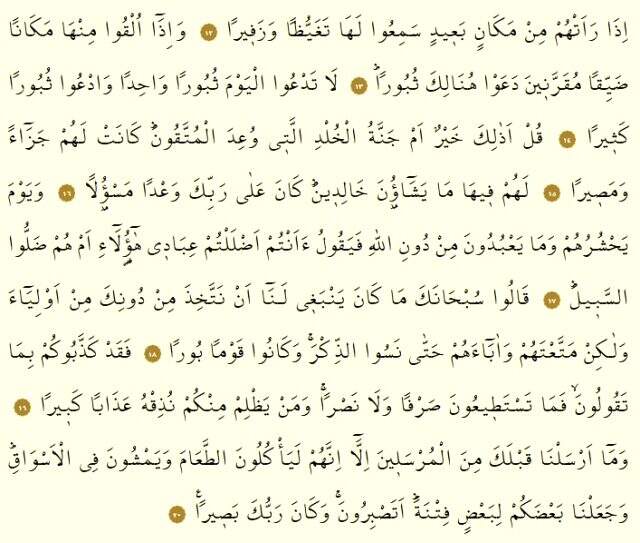 اِذَا رَاَتْهُمْ مِنْ مَكَانٍ بَعٖيدٍ سَمِعُوا لَهَا تَغَيُّظًا وَزَفٖيرًا ١٢ وَاِذَٓا اُلْقُوا مِنْهَا مَكَانًا
ضَيِّقًا مُقَرَّنٖينَ دَعَوْا هُنَالِكَ ثُبُورًاؕ ١٣ لَا تَدْعُوا الْيَوْمَ ثُبُورًا وَاحِدًا وَادْعُوا ثُبُورًا
كَثٖيرًا ١٤ قُلْ اَذٰلِكَ خَيْرٌ اَمْ جَنَّةُ الْخُلْدِ الَّتٖى وُعِدَ الْمُتَّقُونَؕ كَانَتْ لَهُمْ جَزَٓاءً
وَمَصٖيرًا ١٥ لَهُمْ فٖيهَا مَا يَشَٓاؤُ۫نَ خَالِدٖينَؕ كَانَ عَلٰى رَبِّكَ وَعْدًا مَسْؤُ۫لًا ١٦ وَيَوْمَ
يَحْشُرُهُمْ وَمَا يَعْبُدُونَ مِنْ دُونِ اللّٰهِ فَيَقُولُ ءَاَنْتُمْ اَضْلَلْتُمْ عِبَادٖى هٰٓؤُ۬لَٓاءِ اَمْ هُمْ ضَلُّوا
السَّبٖيلَؕ ١٧ قَالُوا سُبْحَانَكَ مَا كَانَ يَنْبَغٖى لَنَٓا اَنْ نَتَّخِذَ مِنْ دُونِكَ مِنْ اَوْلِيَٓاءَ
وَلٰكِنْ مَتَّعْتَهُمْ وَاٰبَٓاءَهُمْ حَتّٰى نَسُوا الذِّكْرَۚ وَكَانُوا قَوْمًا بُورًا ١٨ فَقَدْ كَذَّبُوكُمْ بِمَا
تَقُولُونَۙ فَمَا تَسْتَطٖيعُونَ صَرْفًا وَلَا نَصْرًاۚ وَمَنْ يَظْلِمْ مِنْكُمْ نُذِقْهُ عَذَابًا كَبٖيرًا ١٩
وَمَٓا اَرْسَلْنَا قَبْلَكَ مِنَ الْمُرْسَلٖينَ اِلَّٓا اِنَّهُمْ لَيَاْكُلُونَ الطَّعَامَ وَيَمْشُونَ فِى الْاَسْوَاقِؕ
وَجَعَلْنَا بَعْضَكُمْ لِبَعْضٍ فِتْنَةًؕ اَتَصْبِرُونَۚ وَكَانَ رَبُّكَ بَصٖيرًاۚ ٢٠